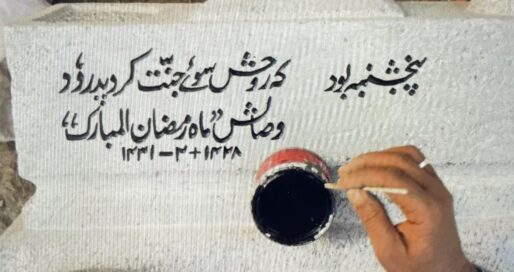 پنجشنبہ بود کہ روحش سوئے جنّت کرد پدرود
وصالش "ماہ رمضان المبارک"
۱۴۲۸ + ۳ - ۱۴۳۱